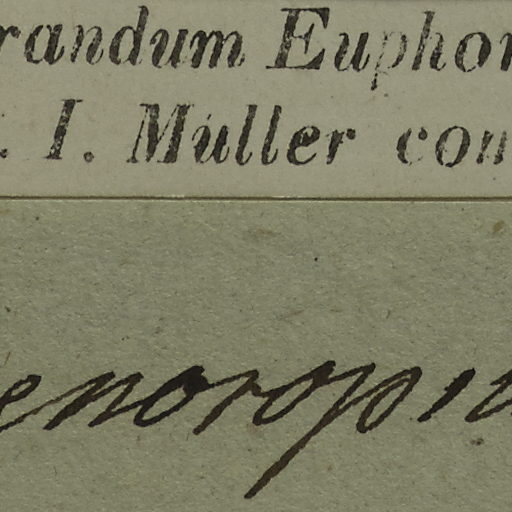 randum Euphor
. I. Müller con
enoropsi